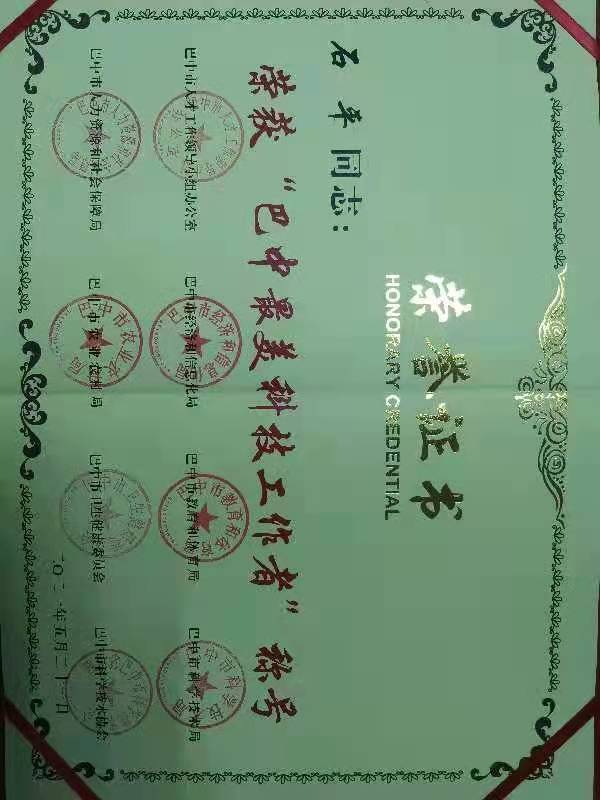 荣誉证书
HONORARY CREDENTIAL
石平 同志：
荣获“巴中最美科技工作者”称号
巴中市人才工作领导小组办公室 巴中市经济和信息化局 巴中市教育和体育局 巴中市科学技术局
巴中市人力资源和社会保障局 巴中市农业农村局 巴中市卫生健康委员会 巴中市科学技术协会
二〇二一年五月二十一日